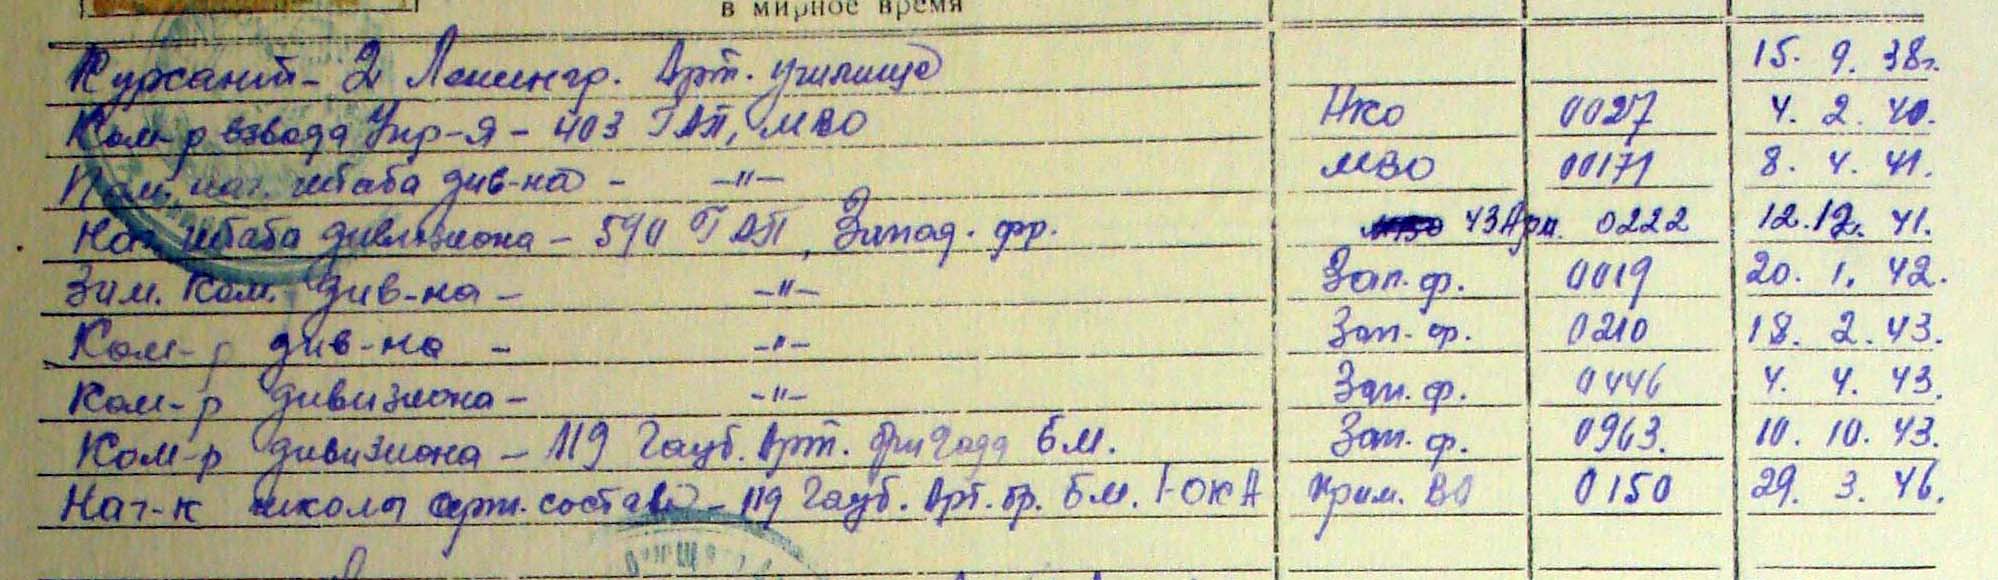 в мирное время
Курсант - 2 Ленингр. Арт. училище 15. 9. 38г.
Ком-р взвода Упр-я - 403 ГАП, МВО НКО 0027 4. 2. 40.
Пом. нач. штаба див-на - -"- МВО 00171 8. 4. 41.
Нач. штаба дивизиона - 590 ГАП, Запад. фр. 43 Арм. 0222 12. 12. 41.
Зам. Ком. див-на - -"- Зап. ф. 0019 20. 1. 42.
Ком-р див-на - -"- Зап. ф. 0210 18. 2. 43.
Ком-р дивизиона - -"- Зап. ф. 0446 4. 4. 43.
Ком-р дивизиона - 119 Гауб. Арт. бригада бм. Зап. ф. 0963. 10. 10. 43.
Нач-к школы серж. состава - 119 Гауб. Арт. бр. бм. 1-ОКА Прим. ВО 0150 29. 3. 46.